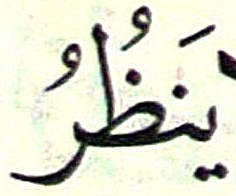 يَنظُرُ